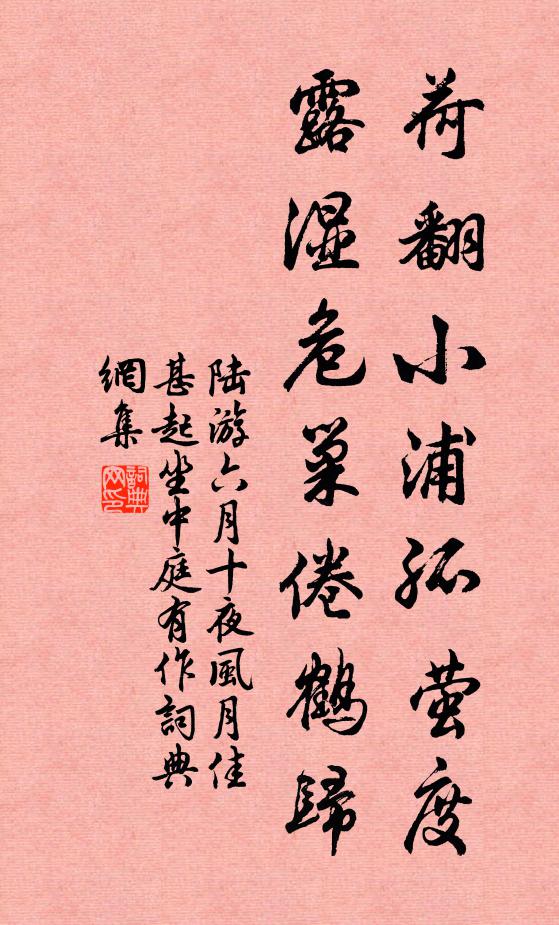 荷翻小浦孤萤度
露湿危巢倦鹤歸
陆游六月十夜風月佳
甚起坐中庭有作詞典
網集
詞典
网印